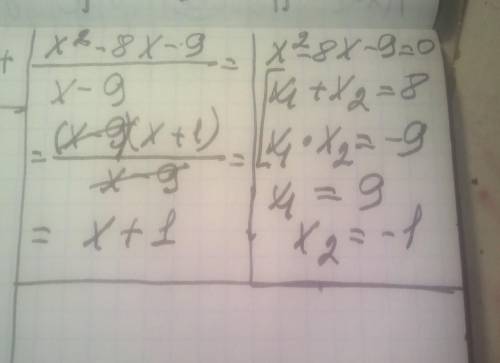 +
x² - 8x - 9
x - 9
=
= (x-9)(x+1)
x - 9
=
= x + 1
x² - 8x - 9 = 0
x₁ + x₂ = 8
x₁ · x₂ = -9
x₁ = 9
x₂ = -1